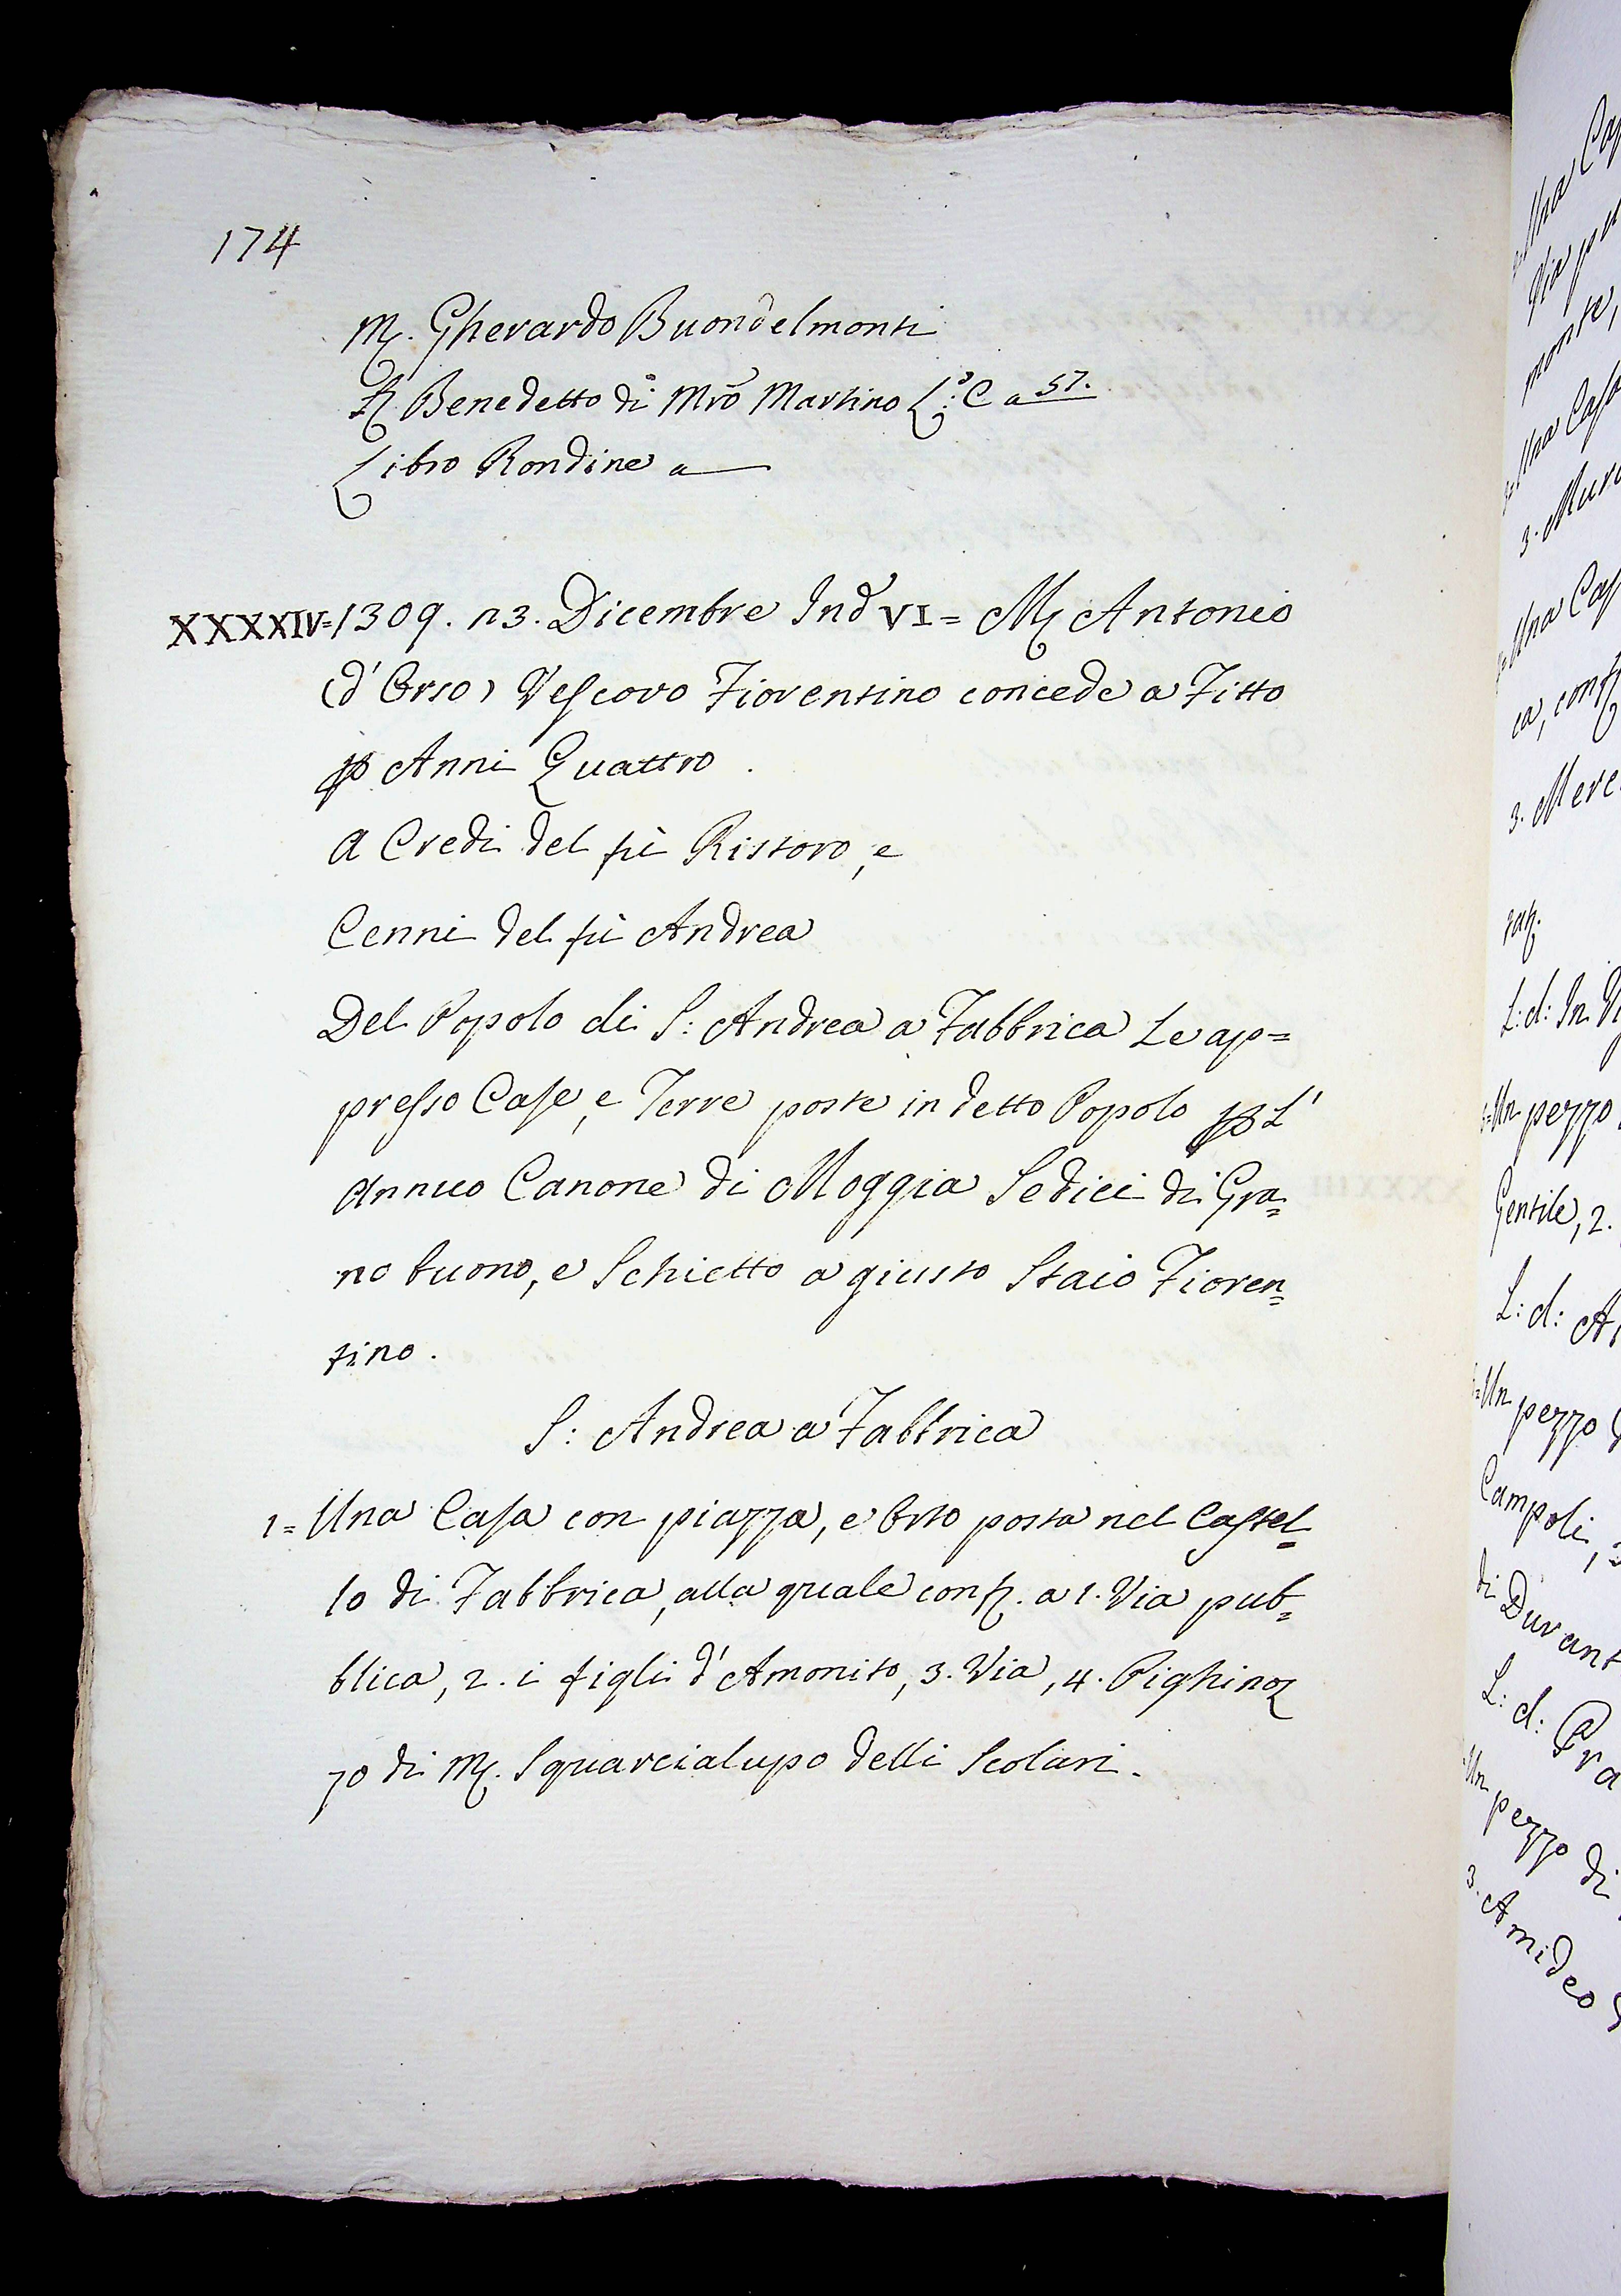 174
M. Gherardo Buondelmonti
R Benedetto di Mro Martino L:o C a 57.
Libro Rondine a
XXXXIV=1309. 23. Dicembre Ind VI= M Antonio
(d'Orso) Vescovo Fiorentino concede a Fitto
p Anni Quattro.
A Credi del fù Ristoro, e
Cenni del fù Andrea
Del Popolo di S: Andrea a Fabbrica Le ap=
presso Case, e Terre poste in detto Popolo p L'
annuo Canone di Moggia Sedici di Gra=
no buono, e Schietto a giusto Staio Fioren=
tino.
S: Andrea a Fabbrica
1= Una Casa con piazza, e Orto posta nel Castel=
lo di Fabbrica, alla quale conf. a 1. Via pub=
blica, 2. i figli d'Amonito, 3. Via, 4. Pighinoz
zo di M. Squarcialupo delli Scolari.
Una
Via pu
monte,
Una Casa
3. Mur
Una Cas
ca, conf
3. Mere
L: d: In
Un pezzo
Gentile, 2.
L: d: A
Un pezzo
Campoli,
di Durant
L: d: Pra
Un pezzo di
3. Amideo